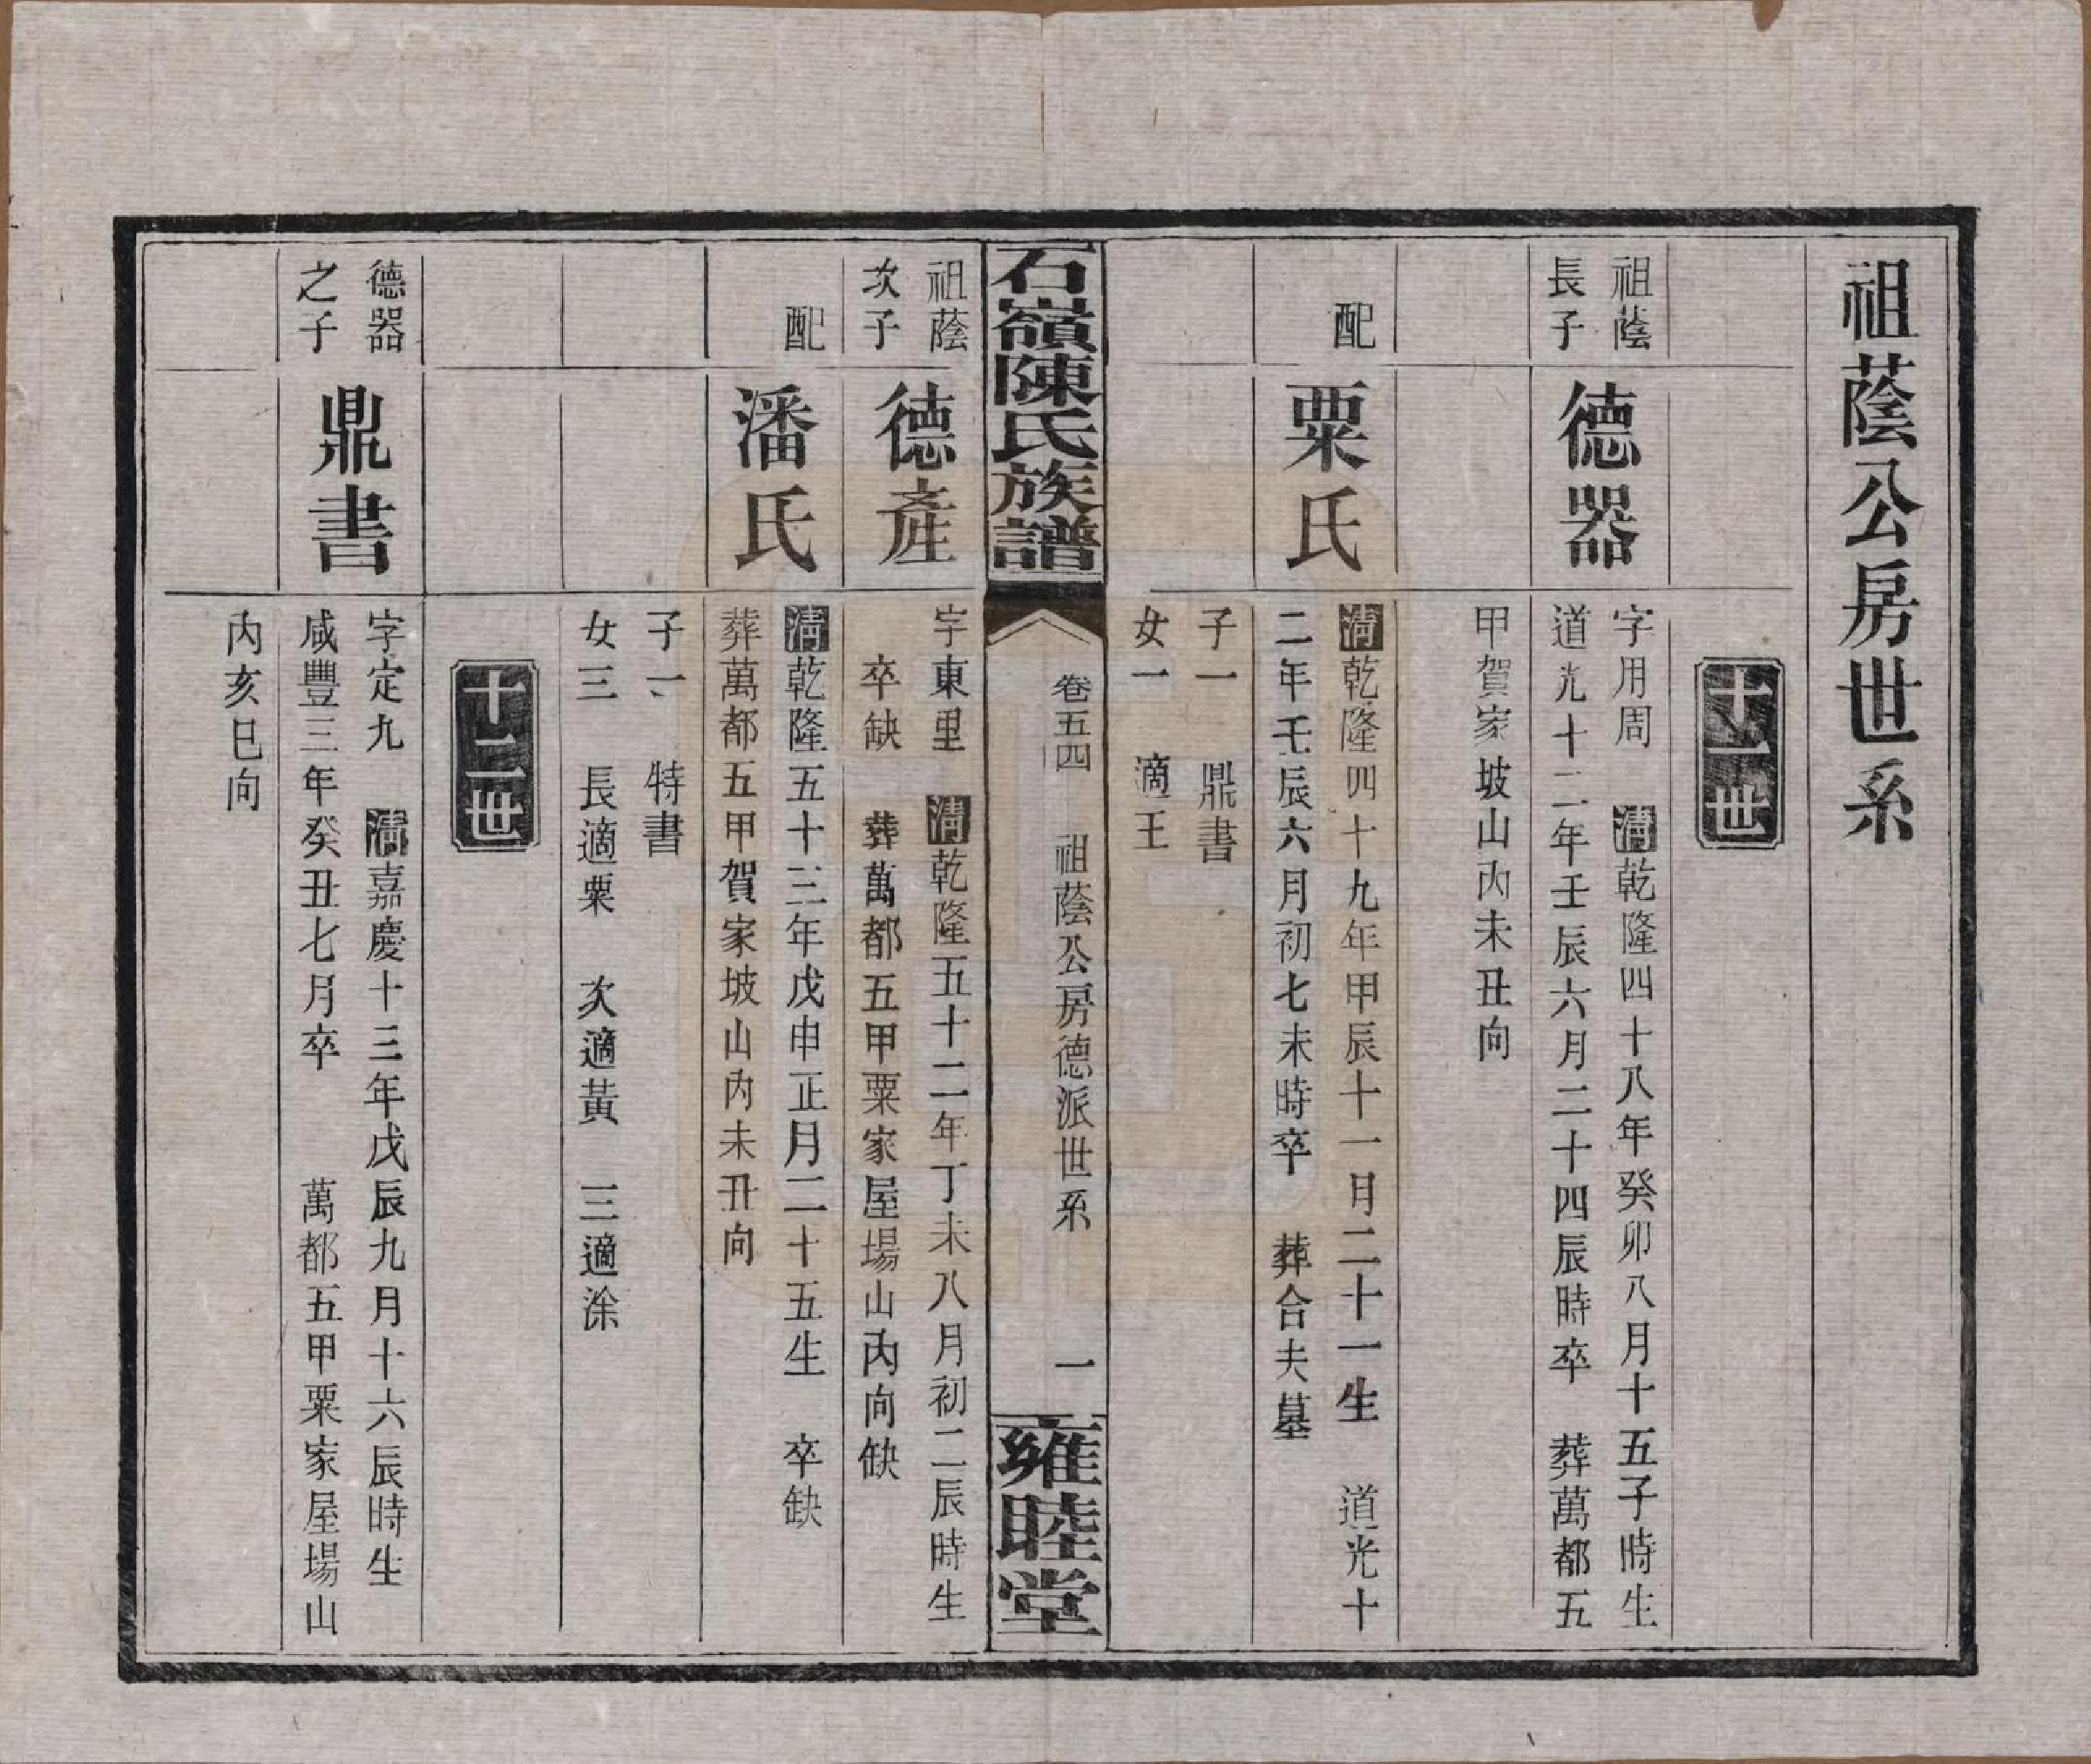 祖蔭公房世系
十一世
祖蔭
長子
德器
字用周　清乾隆四十八年癸卯八月十五子時生
道光十二年壬辰六月二十四辰時卒　葬萬都五
甲賀家坡山內未丑向
配
粟氏
清乾隆四十九年甲辰十一月二十一生　道光十
二年壬辰六月初七未時卒　葬合夫墓
子一　鼎書
女一　適王
石嶺陳氏族譜
卷五四　祖蔭公房德派世系　一
雍睦堂
祖蔭
次子
德產
字東里　清乾隆五十二年丁未八月初二辰時生
卒缺　葬萬都五甲粟家屋場山內向缺
配
潘氏
清乾隆五十三年戊申正月二十五生　卒缺
葬萬都五甲賀家坡山內未丑向
子一　特書
女三　長適粟　次適黃　三適涂
十二世
德器
之子
鼎書
字定九　清嘉慶十三年戊辰九月十六辰時生
咸豐三年癸丑七月卒　萬都五甲粟家屋場山
內亥巳向